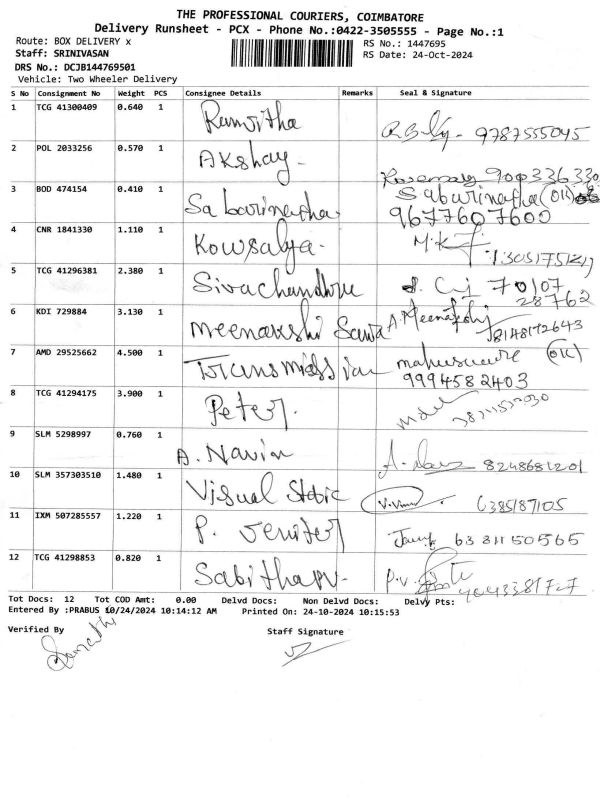 THE PROFESSIONAL COURIERS, COIMBATORE
Delivery Runsheet - PCX - Phone No.:0422-3505555 - Page No.:1
Route: BOX DELIVERY x
RS No.: 1447695
Staff: SRINIVASAN
RS Date: 24-Oct-2024
DRS No.: DCJB144769501
Vehicle: Two Wheeler Delivery
S No Consignment No Weight PCS Consignee Details Remarks Seal & Signature
1 TCG 41300409 0.640 1 Ramvitha 9787555045
2 POL 2033256 0.570 1 Akshay.
3 BOD 474154 0.410 1 Sabarinatha Sabarinatha (OK)
9677607600
4 CNR 1841330 1.110 1 Kowsalya. M.K
5 TCG 41296381 2.380 1 Sivachandhru 70107
28762
6 KDI 729884 3.130 1 Meenakshi A. Meenakshi 8148172643
7 AMD 29525662 4.500 1 Transmission (OK)
9994582403
8 TCG 41294175 3.900 1 Peter.
9 SLM 5298997 0.760 1 A. Navin 8248681201
10 SLM 357303510 1.480 1 Visual 6385187105
11 IXM 507285557 1.220 1 P. Jenifer 6381150565
12 TCG 41298853 0.820 1 Sabitha P.V. P.V.
Tot Docs: 12 Tot COD Amt: 0.00 Delvd Docs: Non Delvd Docs: Delvy Pts:
Entered By :PRABUS 10/24/2024 10:14:12 AM Printed On: 24-10-2024 10:15:53
Verified By Staff Signature